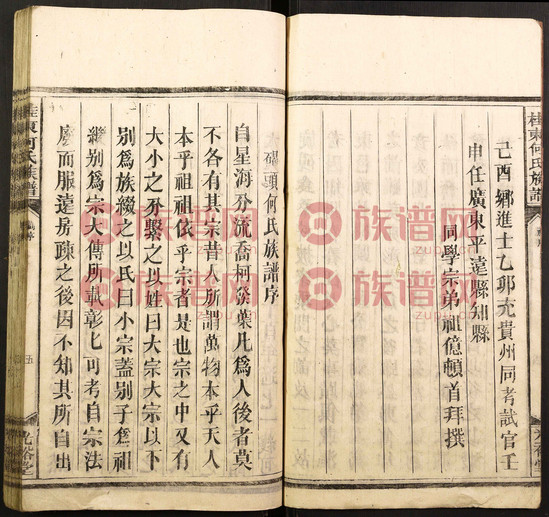 桂東何氏族譜
己酉鄉進士乙卯充貴州同考試官壬
申任廣東平遠縣知縣
同學宗弟祖億頓首拜撰
碼頭何氏族譜序
自星海分流喬柯發葉凡爲人後者莫
不各有其宗昔人所謂萬物本乎天人
本乎祖祖依乎宗者是也宗之中又有
大小之分繫之以姓曰大宗大宗以下
別爲族綴之以氏曰小宗蓋別子爲祖
繼別爲宗大傳所載彰匕可考自宗法
廢而服遠房疎之後因不知其所自出
桂東何氏族譜
五
光裕堂
族谱网
族谱网
族谱网
族谱网